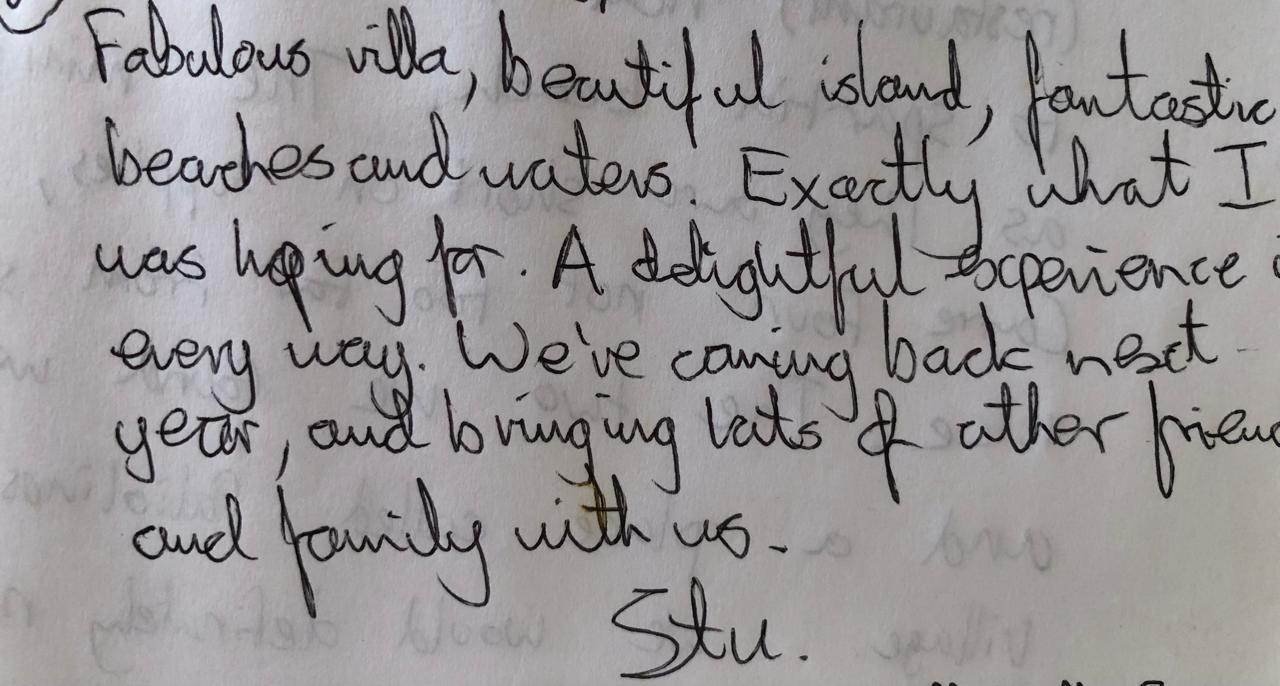 Fabulous villa, beautiful island, fantastic
beaches and waters. Exactly what I
was hoping for. A delightful experience
every way. We're coming back next
year, and bringing lots of other frien
and family with us.
Stu.